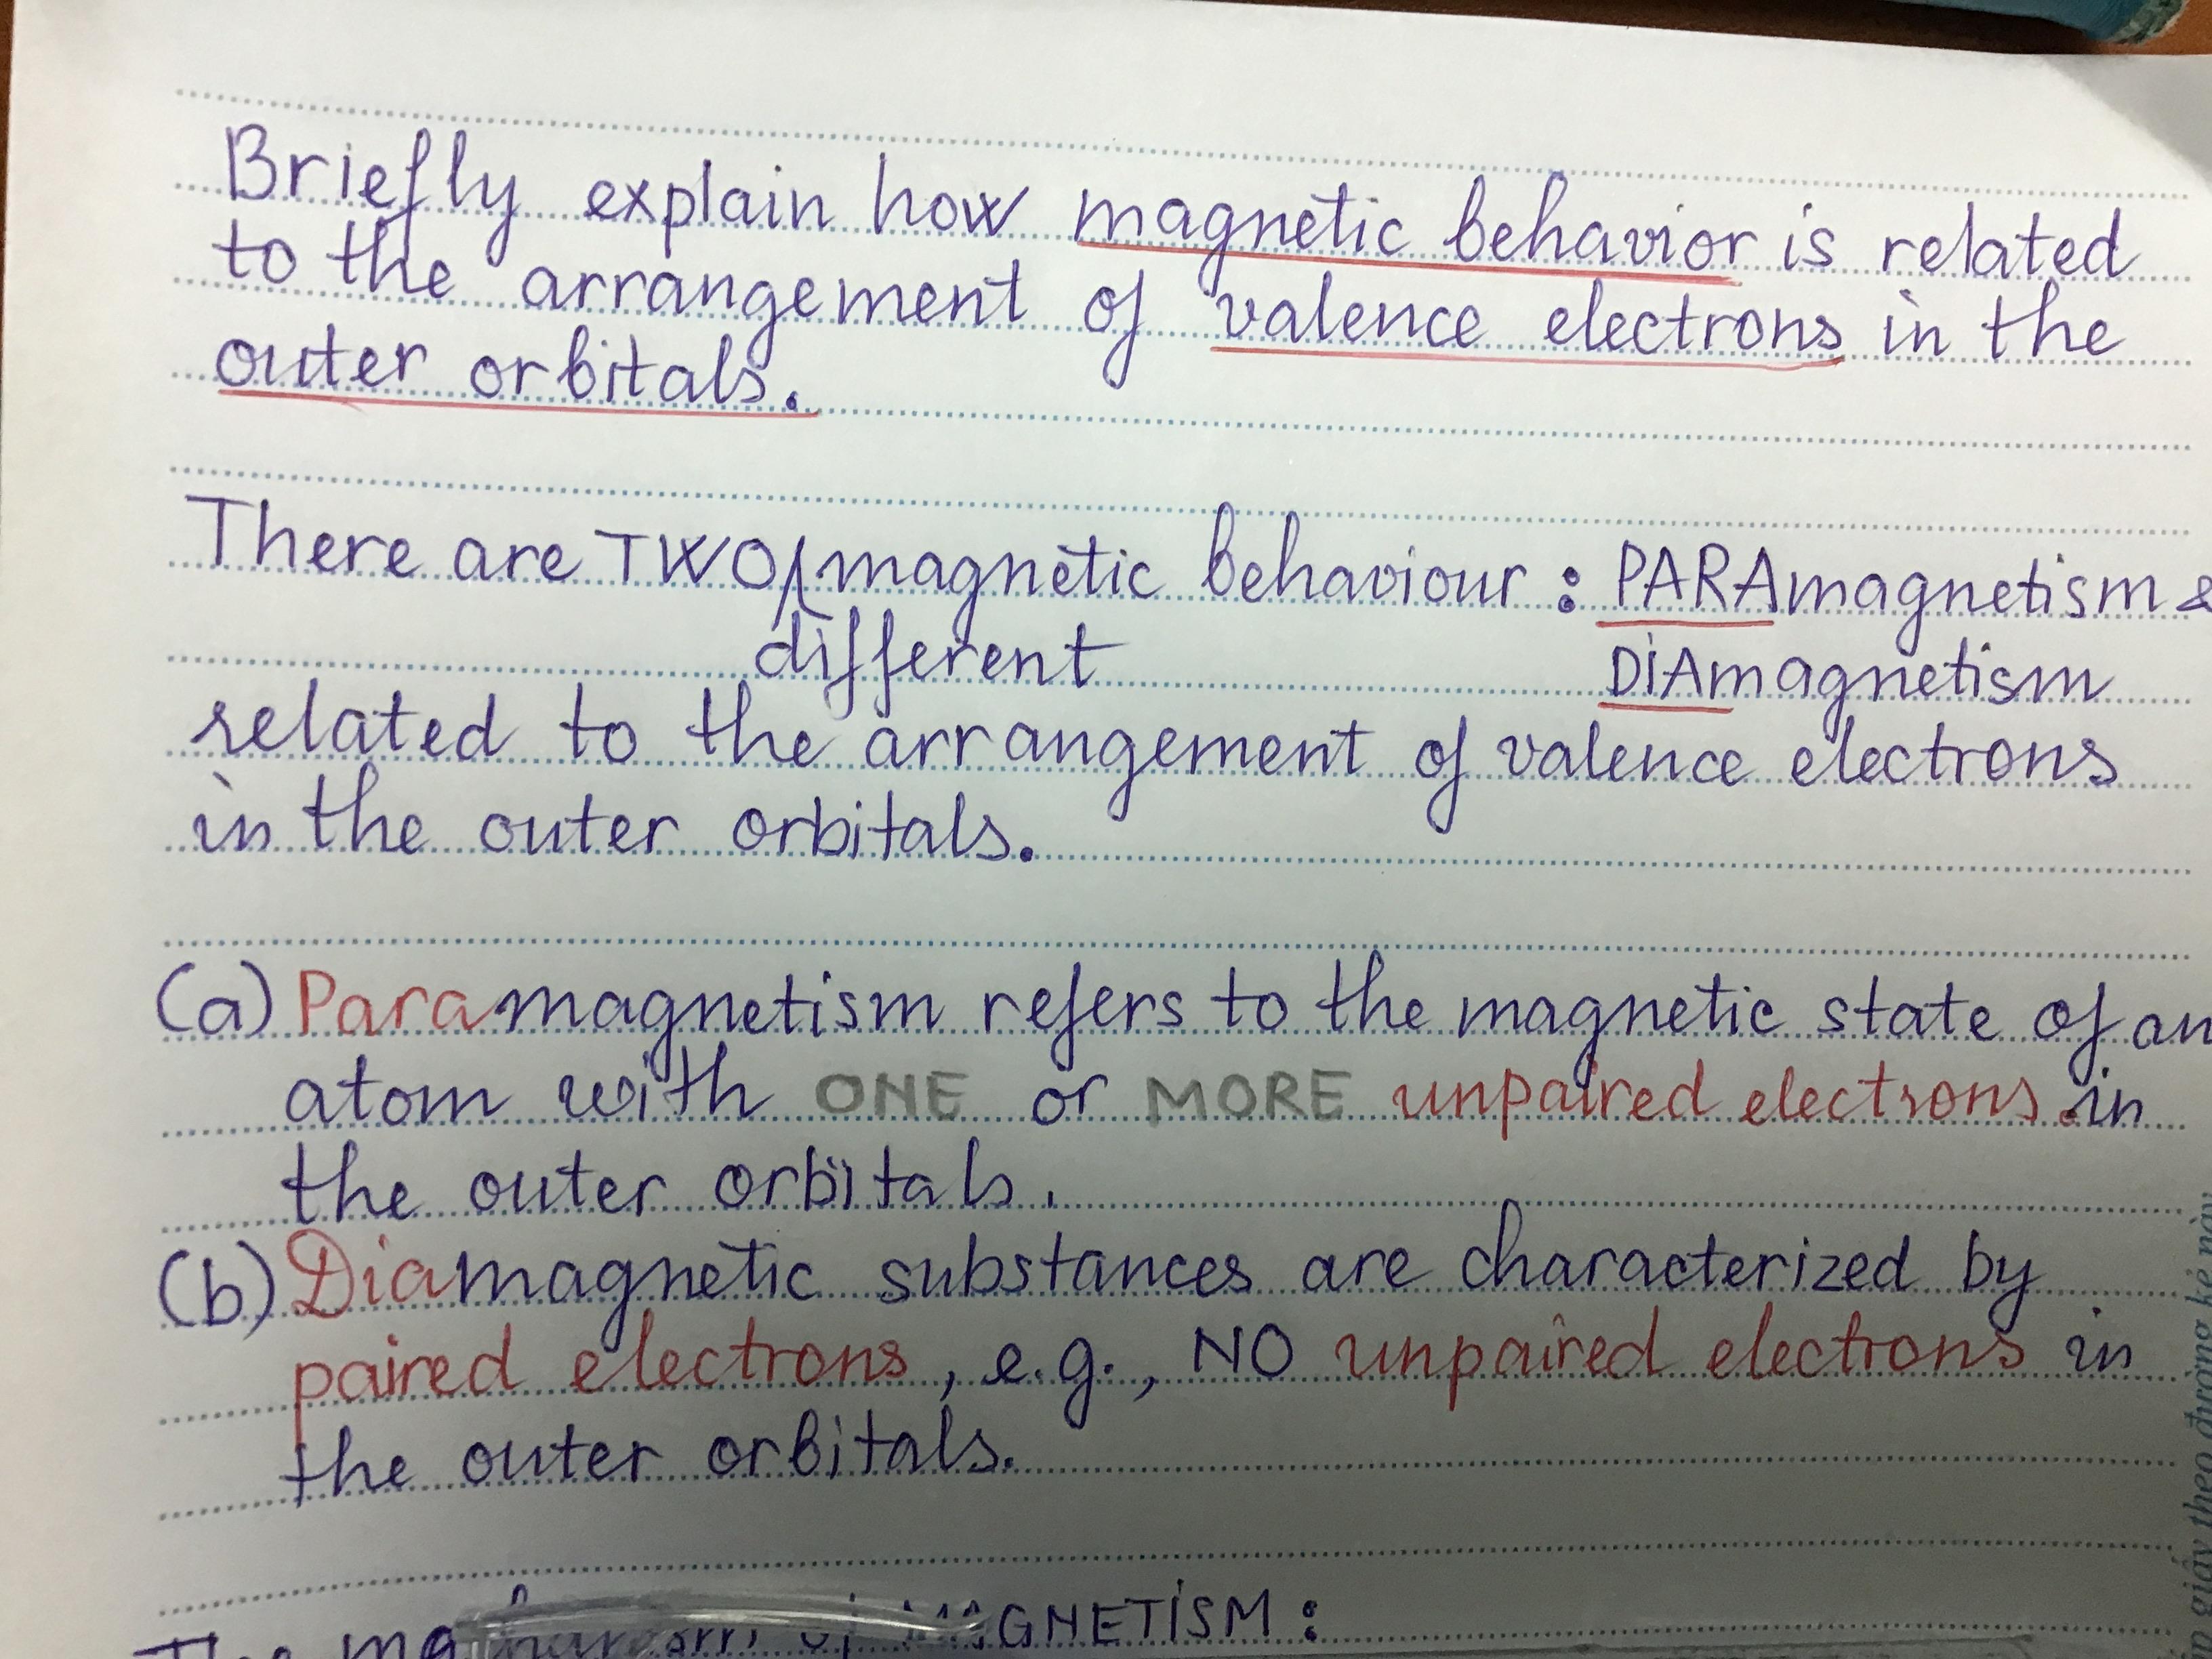 Briefly explain how magnetic behavior is related
to the arrangement of valence electrons in the
outer orbitals.
There are TWO magnetic behaviour : PARAmagnetism &
different DIAmagnetism
related to the arrangement of valence electrons
in the outer orbitals.
(a) Paramagnetism refers to the magnetic state of an
atom with ONE or MORE unpaired electrons in
the outer orbitals.
(b) Diamagnetic substances are characterized by
paired electrons, e.g., NO unpaired electrons in
the outer orbitals.
The MAGNETISM :
giấy theo đường kẻ này